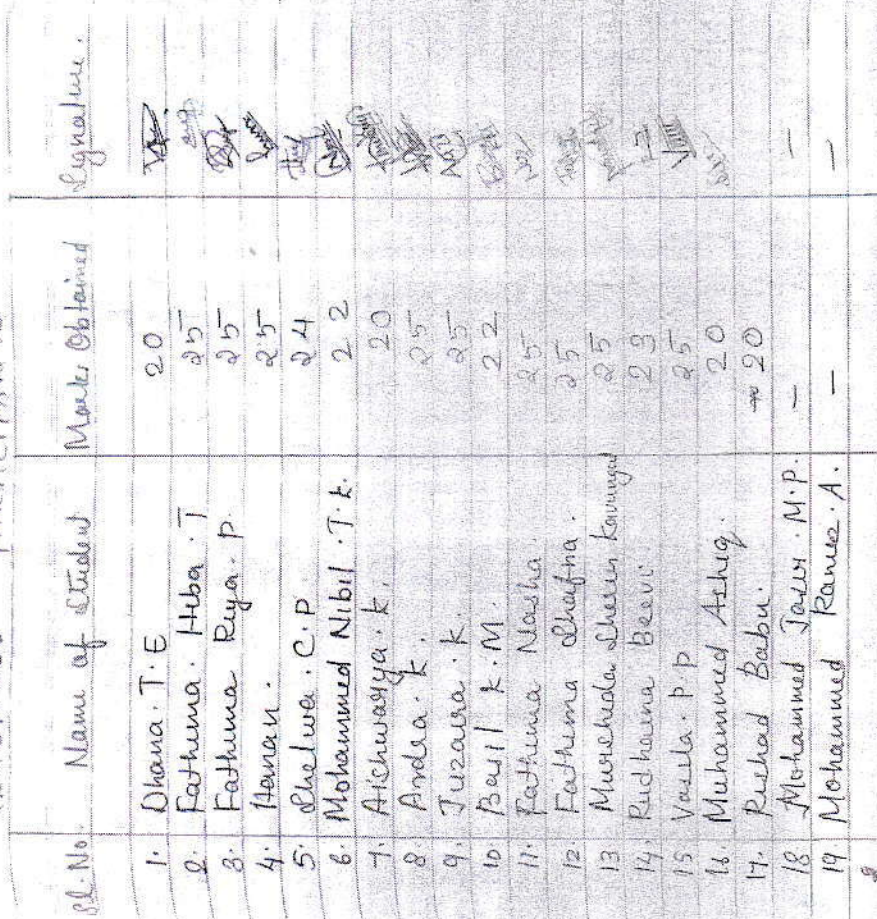 Sl No. Name of Student Marks Obtained Signature.
1. Dhana. T. E 20
2. Fathima. Hiba. T 25
3. Fathima Riya. P. 25
4. Hanan. 25
5. Shelwa. C. P 24
6. Mohammed Nibil. T. k. 22
7. Aishwarya. k. 20
8. k. 25
9. K. 25
10 Basil k. M. 22
11. Fathima Nasha. 25
12 Fathima Shafna. 25
13 Murshida Sherin 25
14. Beevi 23
15 P. P 25
16. Muhammed Ashiq. 20
17. Rushad Babu. 20
18 Mohammed M. P. — —
19. Mohammed A. — —